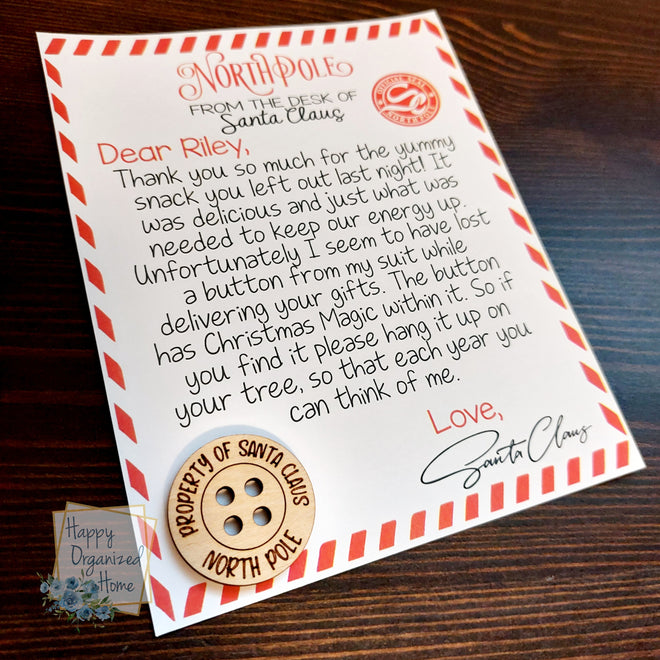 NORTH POLE
FROM THE DESK OF
Santa Claus
OFFICIAL SEAL
SC
NORTH POLE
Dear Riley,
Thank you so much for the yummy
snack you left out last night! It
was delicious and just what was
needed to keep our energy up.
Unfortunately I seem to have lost
a button from my suit while
delivering your gifts. The button
has Christmas Magic within it. So if
you find it please hang it up on
your tree, so that each year you
can think of me.
Love,
Santa Claus
PROPERTY OF SANTA CLAUS
NORTH POLE
Happy
Organized
Home